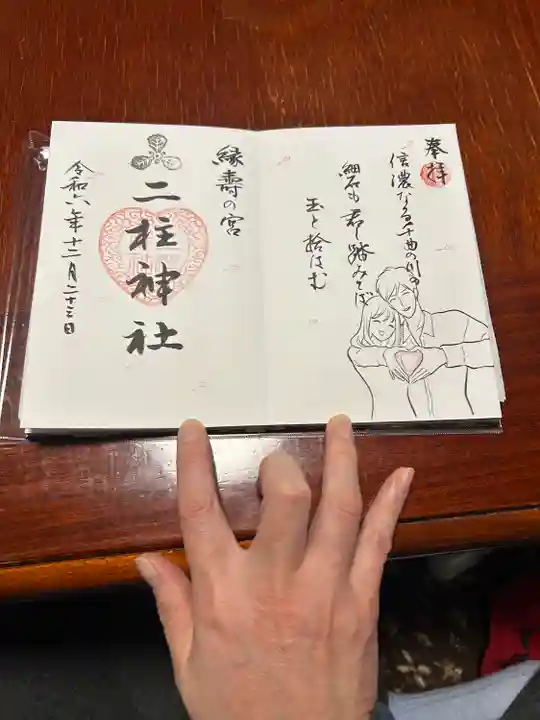 奉拝
信濃なる千曲の川の
細石も君し踏みてば
玉と拾はむ
縁壽の宮
二柱神社
令和六年十二月二十三日